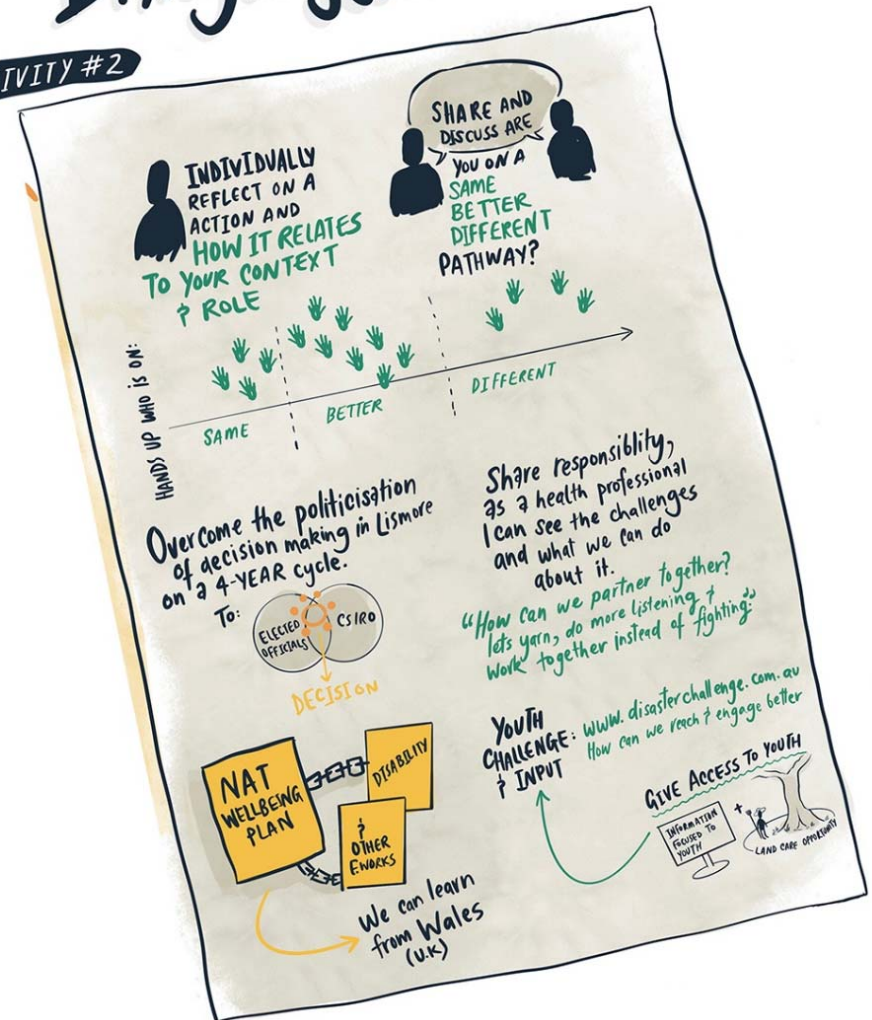 IVITY #2
INDIVIDUALLY
REFLECT ON A
ACTION AND
HOW IT RELATES
TO YOUR CONTEXT
& ROLE
SHARE AND
DISCUSS ARE
YOU ON A
SAME
BETTER
DIFFERENT
PATHWAY?
HANDS UP WHO IS ON:
SAME
BETTER
DIFFERENT
Overcome the politicisation
of decision making in Lismore
on a 4-YEAR cycle.
To:
ELECTED
OFFICIALS
CSIRO
DECISION
Share responsiblity,
as a health professional
I can see the challenges
and what we can do
about it.
"How can we partner together?
lets yarn, do more listening &
work together instead of fighting."
NAT
WELLBEING
PLAN
DISABILITY
&
OTHER
F.WORKS
We can learn
from Wales
(U.K)
YOUTH
CHALLENGE:
& INPUT
www.disasterchallenge.com.au
How can we reach & engage better
GIVE ACCESS TO YOUTH
INFORMATION
FOCUSED TO
YOUTH
+
LAND CARE OPPORTUNITY